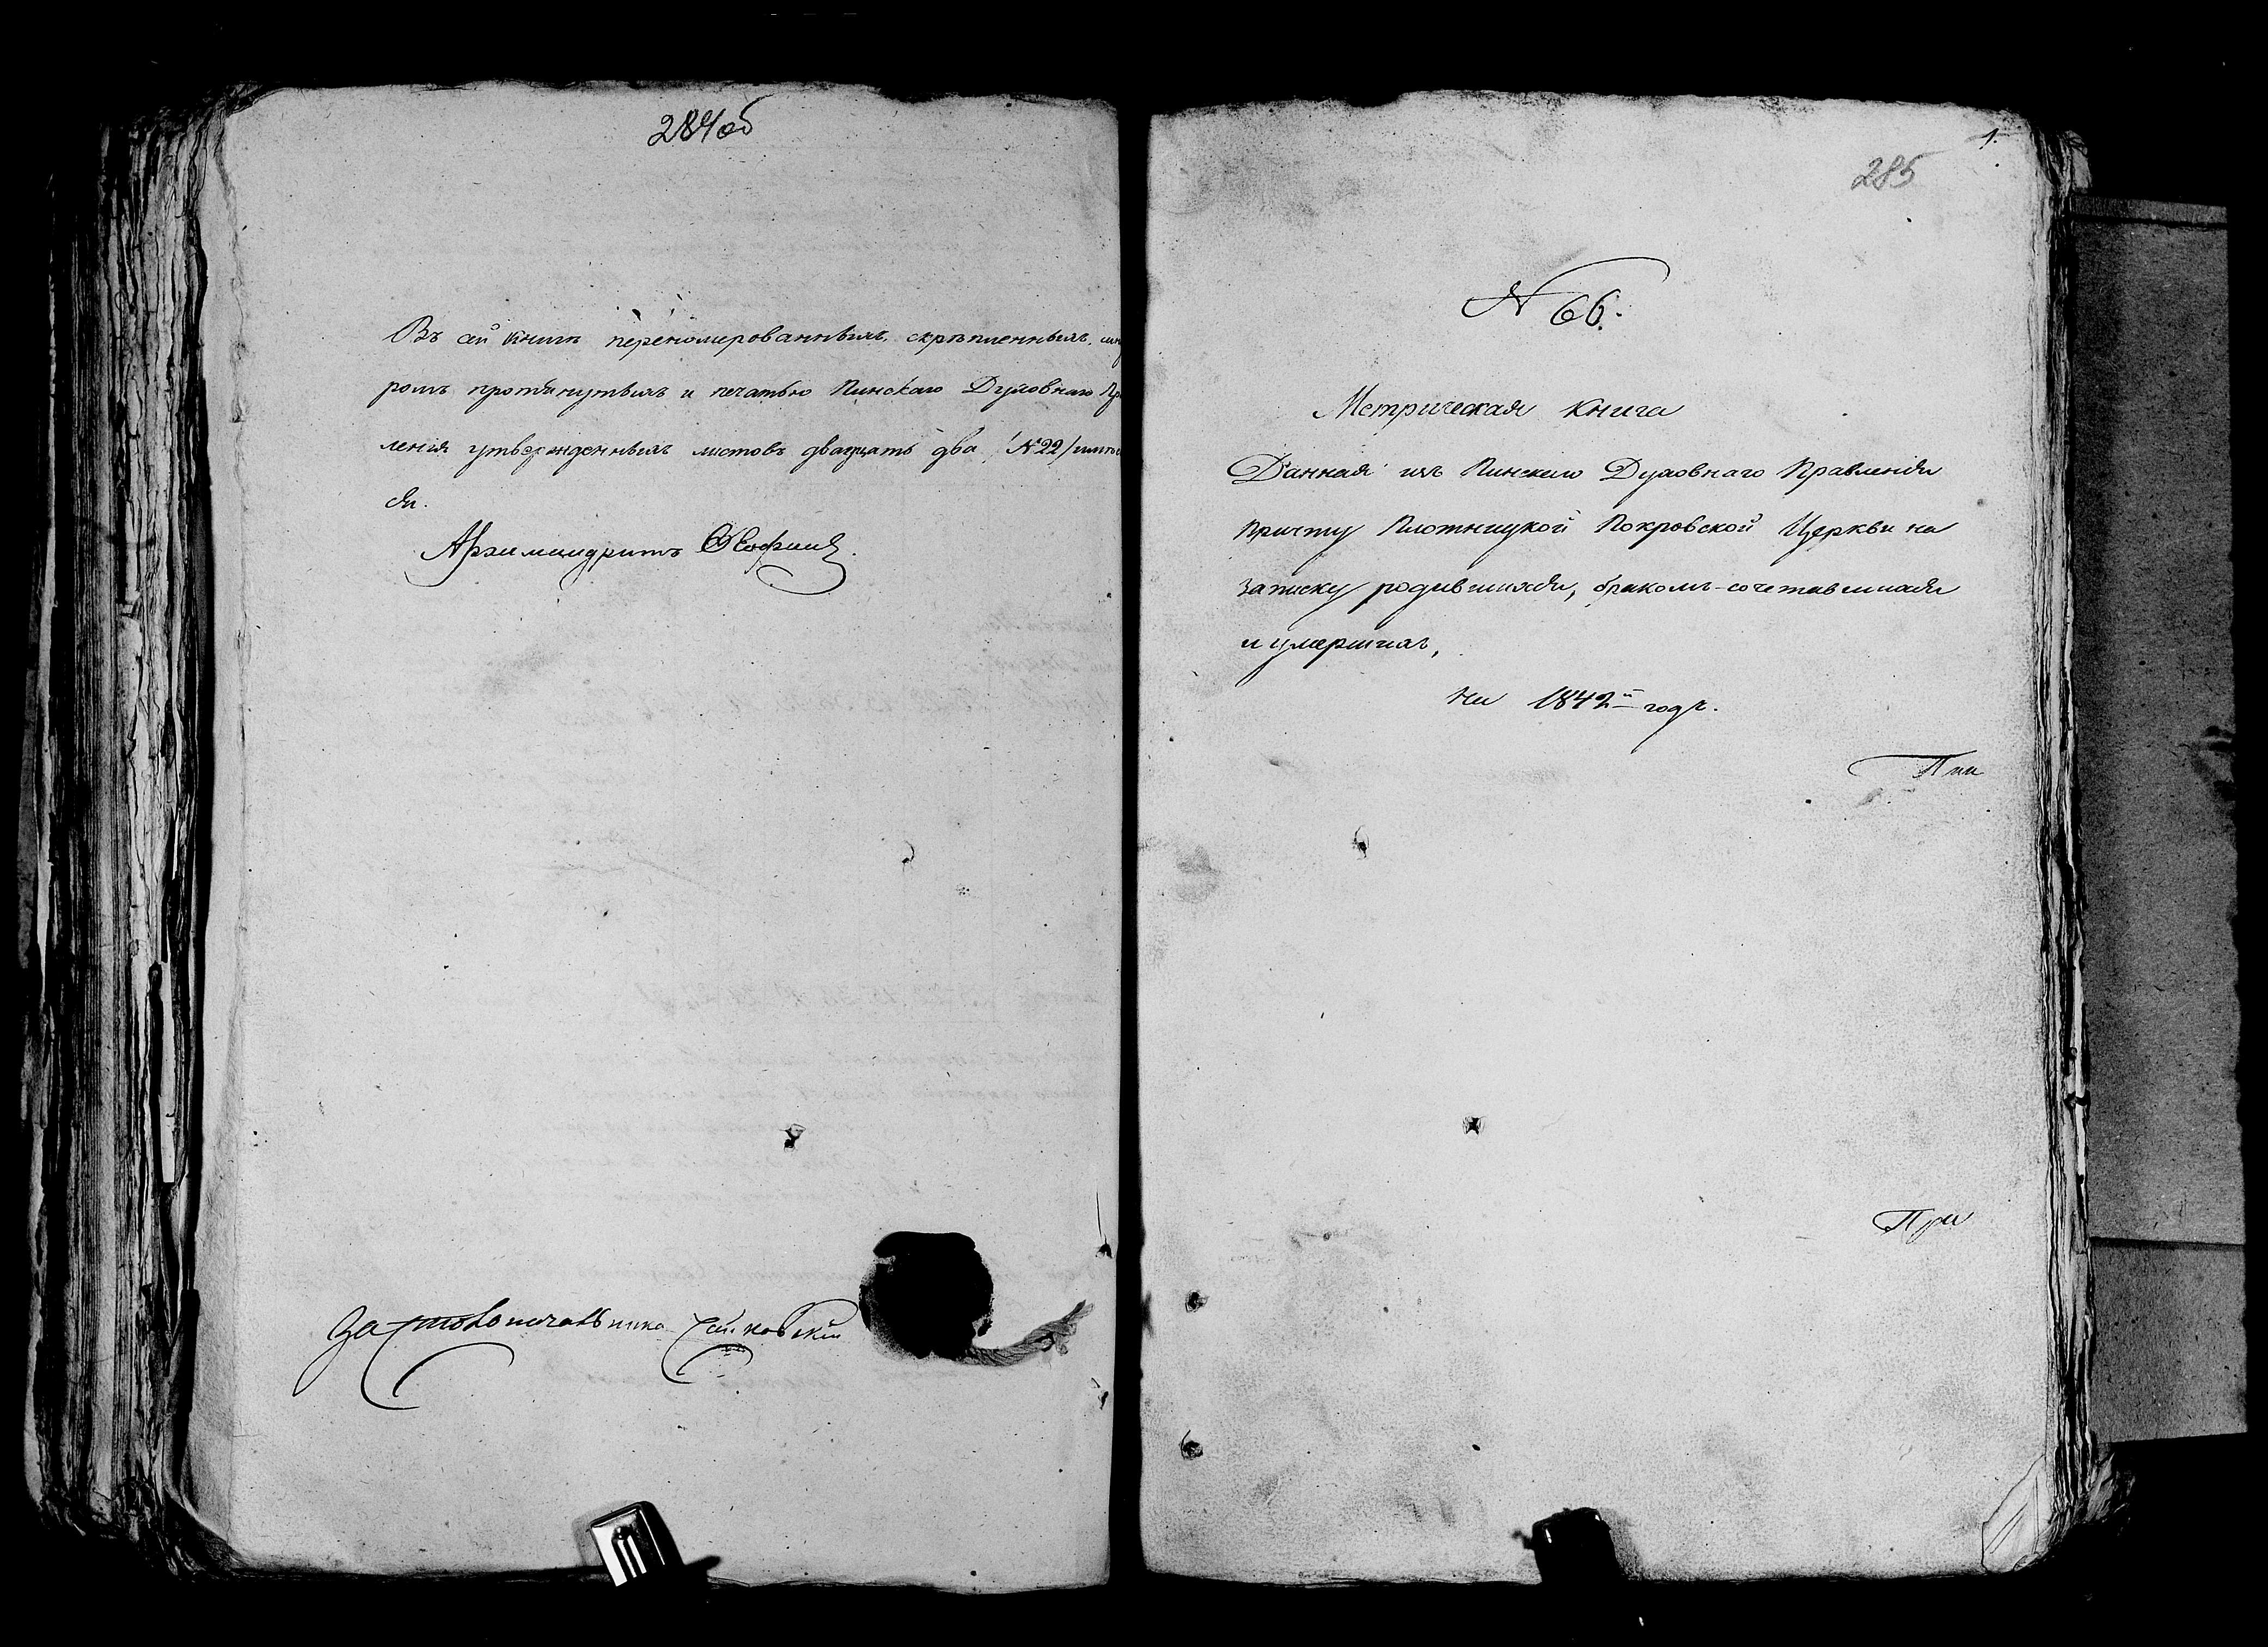 284 об
Въ сей книгѣ перенумерованныхъ, скрѣпленныхъ, шну
ромъ протянутыхъ и печатью Пинскаго Духовнаго Пр
ленія утвержденныхъ листовъ двадцать два /№ 22/
ся.
Архимандритъ
За Столоначальника
1.
285
N 66.
Метрическая книга
Данная изъ Пинскаго Духовнаго Правленія
Причту Плотницкой Покровской Церкви на
записку родившихся, бракомъ-сочетавшихся
и умершихъ,
на 1842й годъ.
Пин
При